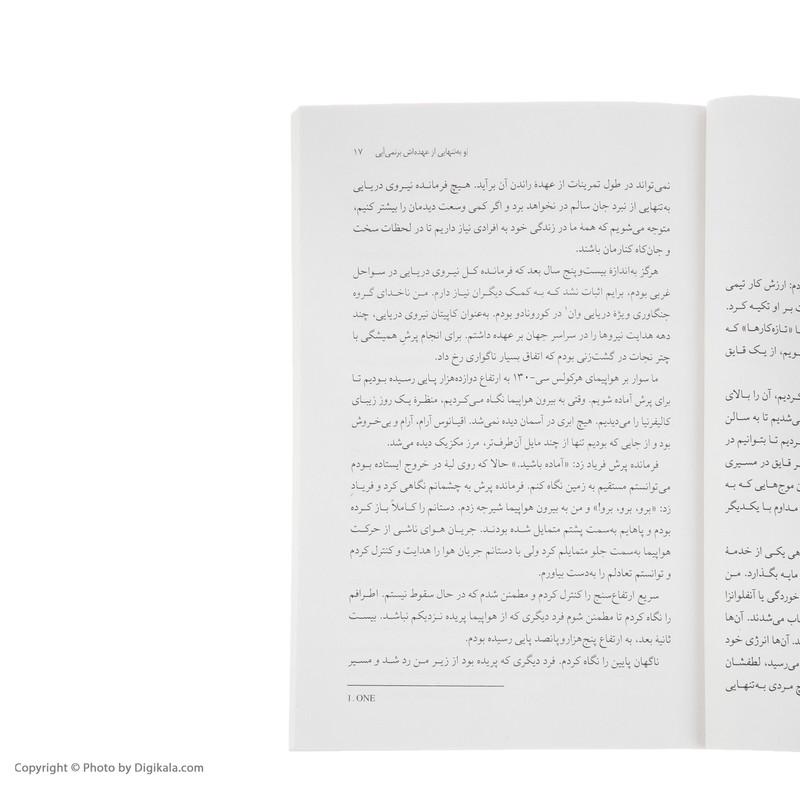 و به‌تنهایی از عهده‌اش برنمی‌آیی ۱۷
نمی‌تواند در طول تمرینات از عهدهٔ راندن آن برآید. هیچ فرمانده نیروی دریایی
به‌تنهایی از نبرد جان سالم در نخواهد برد و اگر کمی وسعت دیدمان را بیشتر کنیم،
متوجه می‌شویم که همهٔ ما در زندگی خود به افرادی نیاز داریم تا در لحظات سخت
و جان‌کاه کنارمان باشند.
هرگز به‌اندازهٔ بیست‌وپنج سال بعد که فرمانده کل نیروی دریایی در سواحل
غربی بودم، برایم اثبات نشد که به کمک دیگران نیاز دارم. من ناخدای گروه
جنگاوری ویژهٔ دریایی وان۱ در کورونادو بودم. به‌عنوان کاپیتان نیروی دریایی، چند
دهه هدایت نیروها را در سراسر جهان بر عهده داشتم. برای انجام پرش همیشگی با
چتر نجات در گشت‌زنی بودم که اتفاق بسیار ناگواری رخ داد.
ما سوار بر هواپیمای هرکولس سی-۱۳۰ به ارتفاع دوازده‌هزار پایی رسیده بودیم تا
برای پرش آماده شویم. وقتی به بیرون هواپیما نگاه می‌کردیم، منظرهٔ یک روز زیبای
کالیفرنیا را می‌دیدیم. هیچ ابری در آسمان دیده نمی‌شد. اقیانوس آرام، آرام و بی‌خروش
بود و از جایی که بودیم تنها از چند مایل آن‌طرف‌تر، مرز مکزیک دیده می‌شد.
فرمانده پرش فریاد زد: «آماده باشید.» حالا که روی لبهٔ در خروج ایستاده بودم
می‌توانستم مستقیم به زمین نگاه کنم. فرمانده پرش به چشمانم نگاهی کرد و فریادِ
زد: «برو، برو، برو!» و من به بیرون هواپیما شیرجه زدم. دستانم را کاملاً باز کرده
بودم و پاهایم به‌سمت پشتم متمایل شده بودند. جریان هوای ناشی از حرکت
هواپیما به‌سمت جلو متمایلم کرد ولی با دستانم جریان هوا را هدایت و کنترل کردم
و توانستم تعادلم را به‌دست بیاورم.
سریع ارتفاع‌سنج را کنترل کردم و مطمئن شدم که در حال سقوط نیستم. اطرافم
را نگاه کردم تا مطمئن شوم فرد دیگری که از هواپیما پریده نزدیکم نباشد. بیست
ثانیهٔ بعد، به ارتفاع پنج‌هزاروپانصد پایی رسیده بودم.
ناگهان پایین را نگاه کردم. فرد دیگری که پریده بود از زیر من رد شد و مسیر
1. ONE
دم: ارزش کار تیمی
ت بر او تکیه کرد.
ا «تازه‌کارها» که
ویم، از یک قایق
کردیم، آن را بالای
ی‌شدیم تا به سالن
ردیم تا بتوانیم در
ر قایق در مسیری
ن موج‌هایی که به
مداوم با یکدیگر
هی یکی از خدمهٔ
مایه بگذارد. من
خوردگی یا آنفلوانزا
اب می‌شدند. آن‌ها
د. آن‌ها انرژی خود
می‌رسید، لطفشان
چ مردی به‌تنهایی
Copyright © Photo by Digikala.com